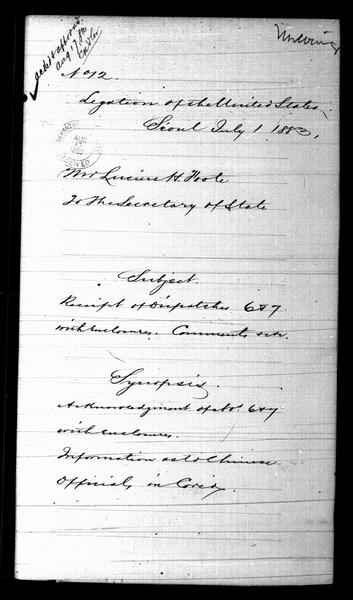 ackd & approved
Aug 17/83
No 12.
Legation of the United States,
Seoul July 1 1883,
RECEIVED
Mr Lucius H. Foote
To The Secretary of State
Subject.
Receipt of Dispatches 6 & 7
with enclosures. Comments &ctr.
Synopsis.
Acknowledgment of Nos. 6 & 7
with enclosures.
Information as to Chinese
Officials in Corea.